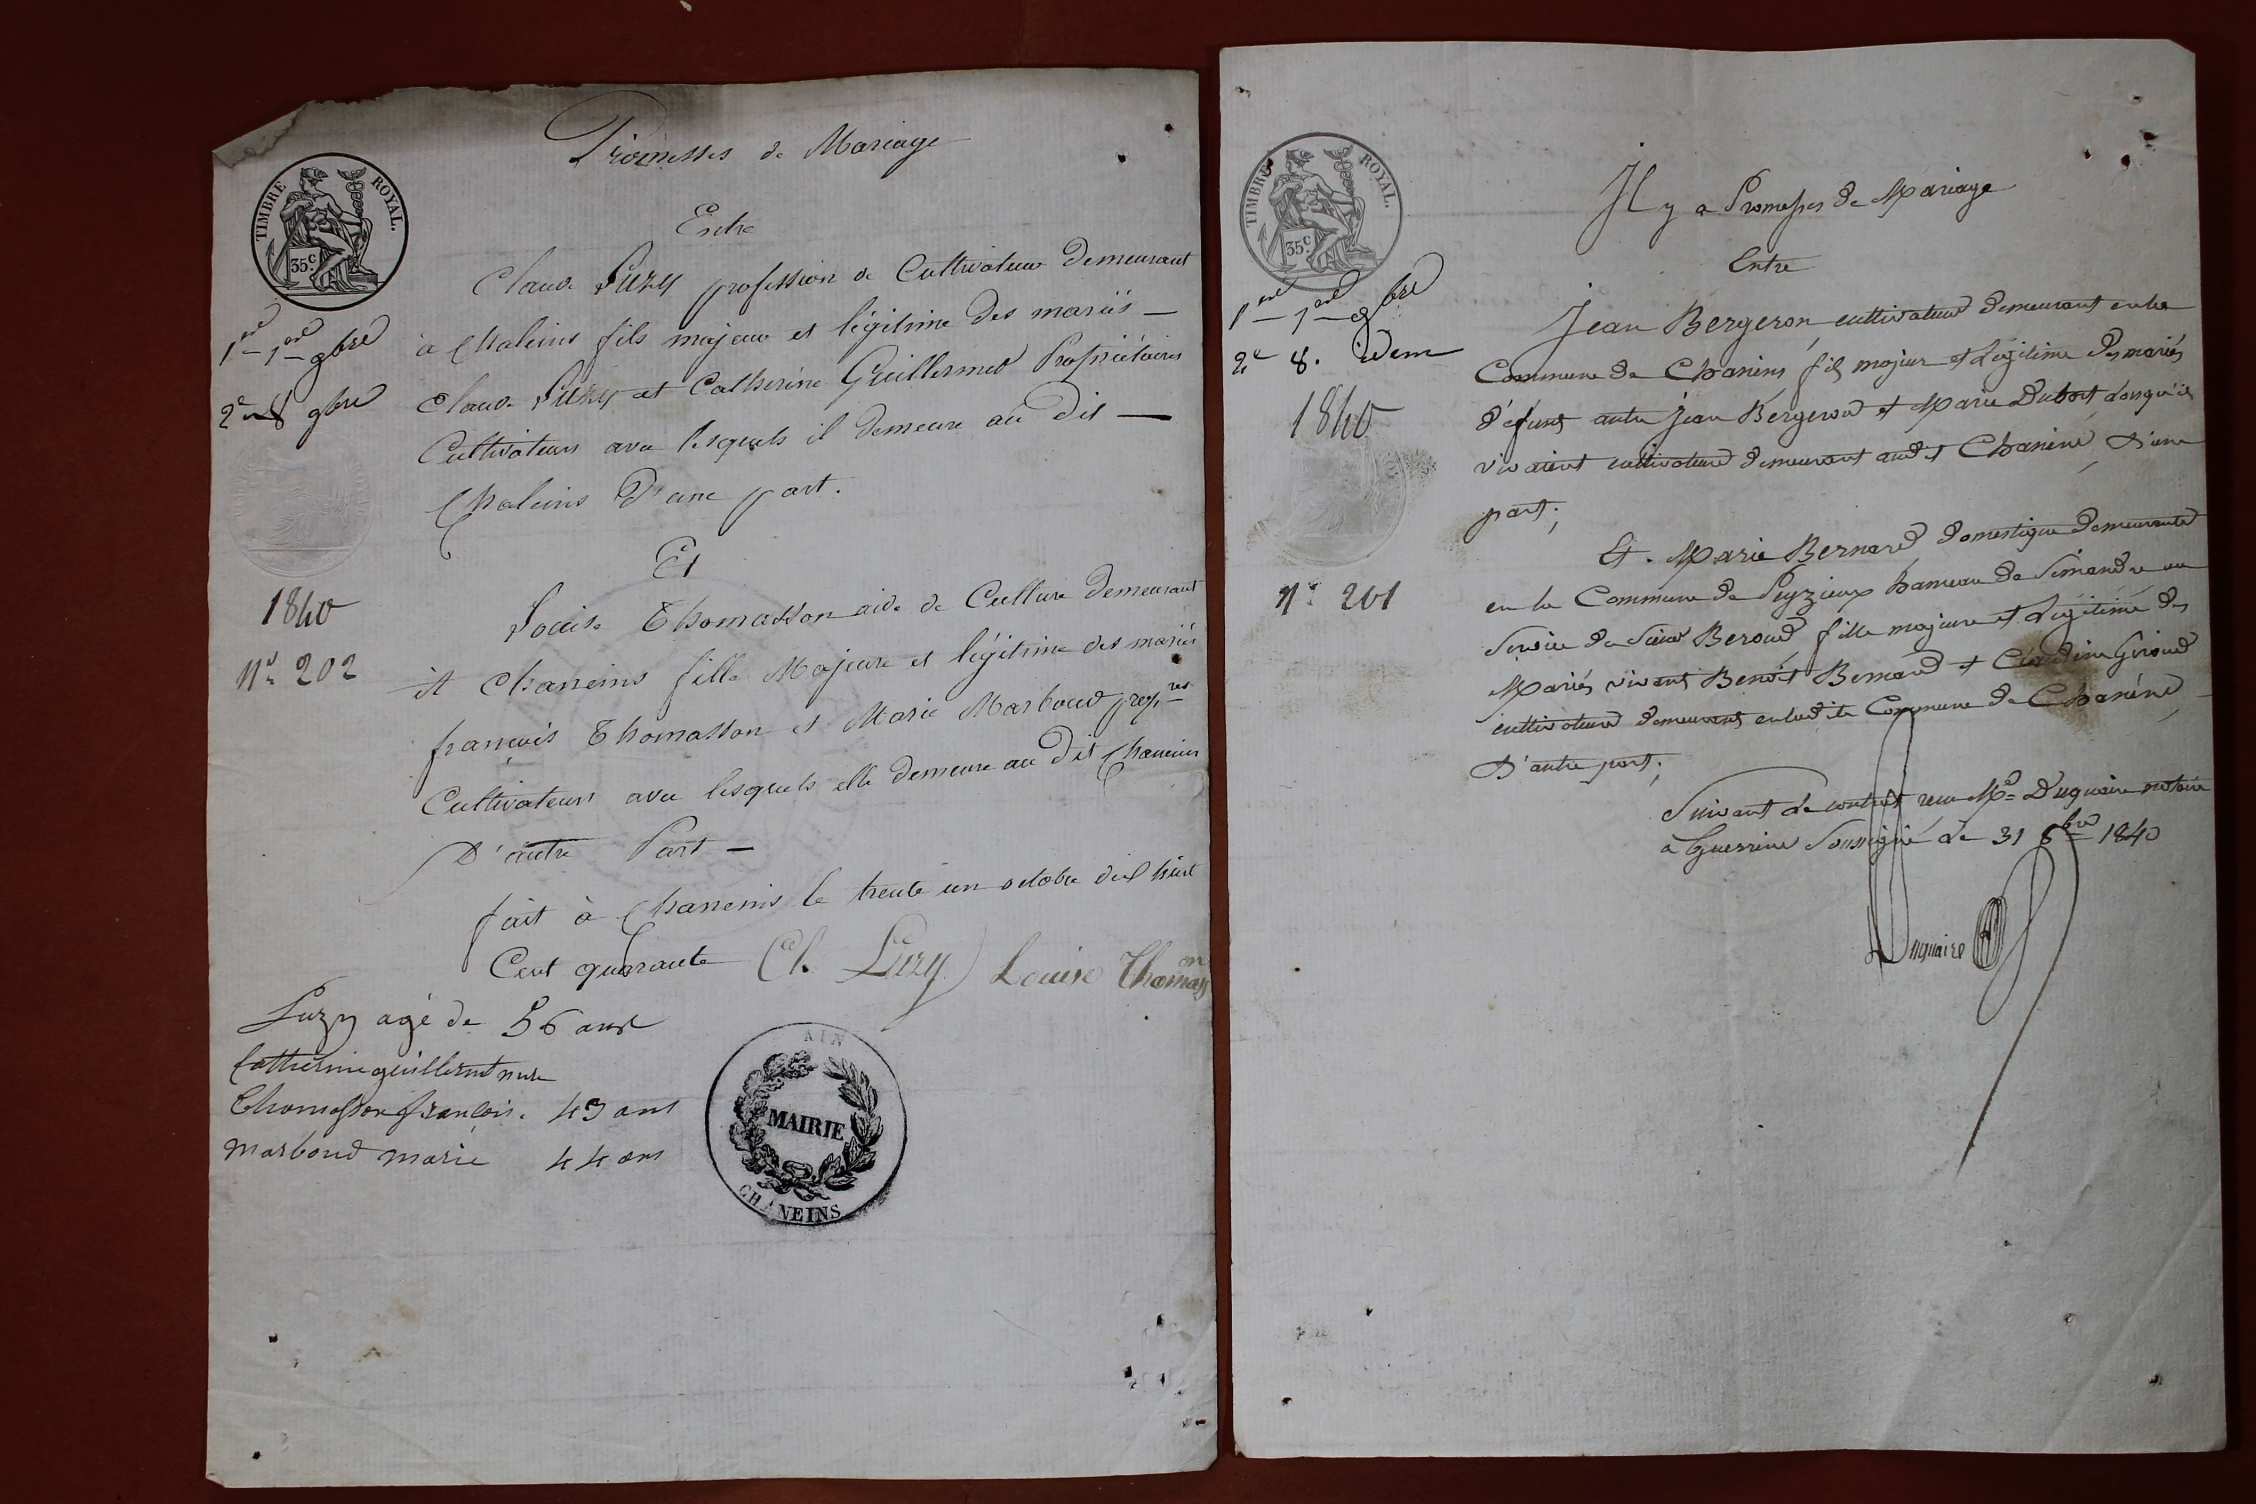 Promesses de Mariage
TIMBRE ROYAL.
35c.
Entre
Claude Luzy profession de Cultivateur demeurant
à Chaleins fils majeur et légitime des mariés —
Claude Luzy et Catherine Guillermet Propriétaires
Cultivateurs avec lesquels il demeure au dit —
Chaleins D'une part.
1re 1er 9bre
2e 8 9bre
1840
No 202
Et
Louise Thomasson aide de Culture demeurant
à Chaneins fille Majeure et légitime des mariés
françois Thomasson et Marie Marboud propres
Cultivateurs avec lesquels elle demeure au dit Chaneins
D'autre Part —
fait à Chaneins le trente un octobre dix huit
Cent quarante Cl. Luzy Louise Thomasson
Luzy agé de 56 ans
Catherine guillermet mere
Thomasson françois. 49 ans
Marboud marie 44 ans
AIN
MAIRIE
CHANEINS
Il y a Promesses de Mariage
TIMBRE ROYAL.
35c.
Entre
Jean Bergeron cultivateur demeurant en la
Commune de Chaneins fils majeur et Légitime des mariés
défunt autre Jean Bergeron et Marie Dubost Lorsqu'ils
vivaient cultivateurs demeurant audit Chaneins, D'une
part;
1re 1er 9bre
2e 8. idem
1840
No 201
Et. Marie Bernard domestique demeurante
en la Commune de Peyzieux hameau de Simandre au
Service de Sieur Beroud fille majeure et Légitime des
Mariés vivant Benoit Bernard et Claudine Giroud
cultivateurs demeurant en ladite Commune de Chaneins,
D'autre part;
Suivant le contrat reçu Me Duquaire notaire
à Guerrins Soussigné le 31 8bre 1840
Duquaire